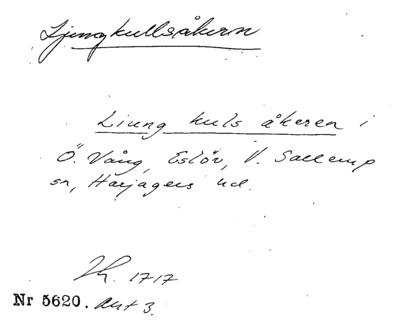 Ljungkullsåkern
Liung kuls åkeren i
Ö. Vång, Eslöv, V. Sallerup
sn, Harjagers hd.
1717
Nr 5620. Akt 3.